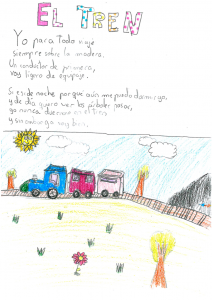 EL TREN
Yo para todo viaje
siempre sobre la madera
Un conductor de primera,
voy ligero de equipaje.
Si es de noche porque aún me puedo dormir yo,
y de día quiero ver los árboles pasar,
yo nunca duermo en el tren
y sin embargo voy bien.